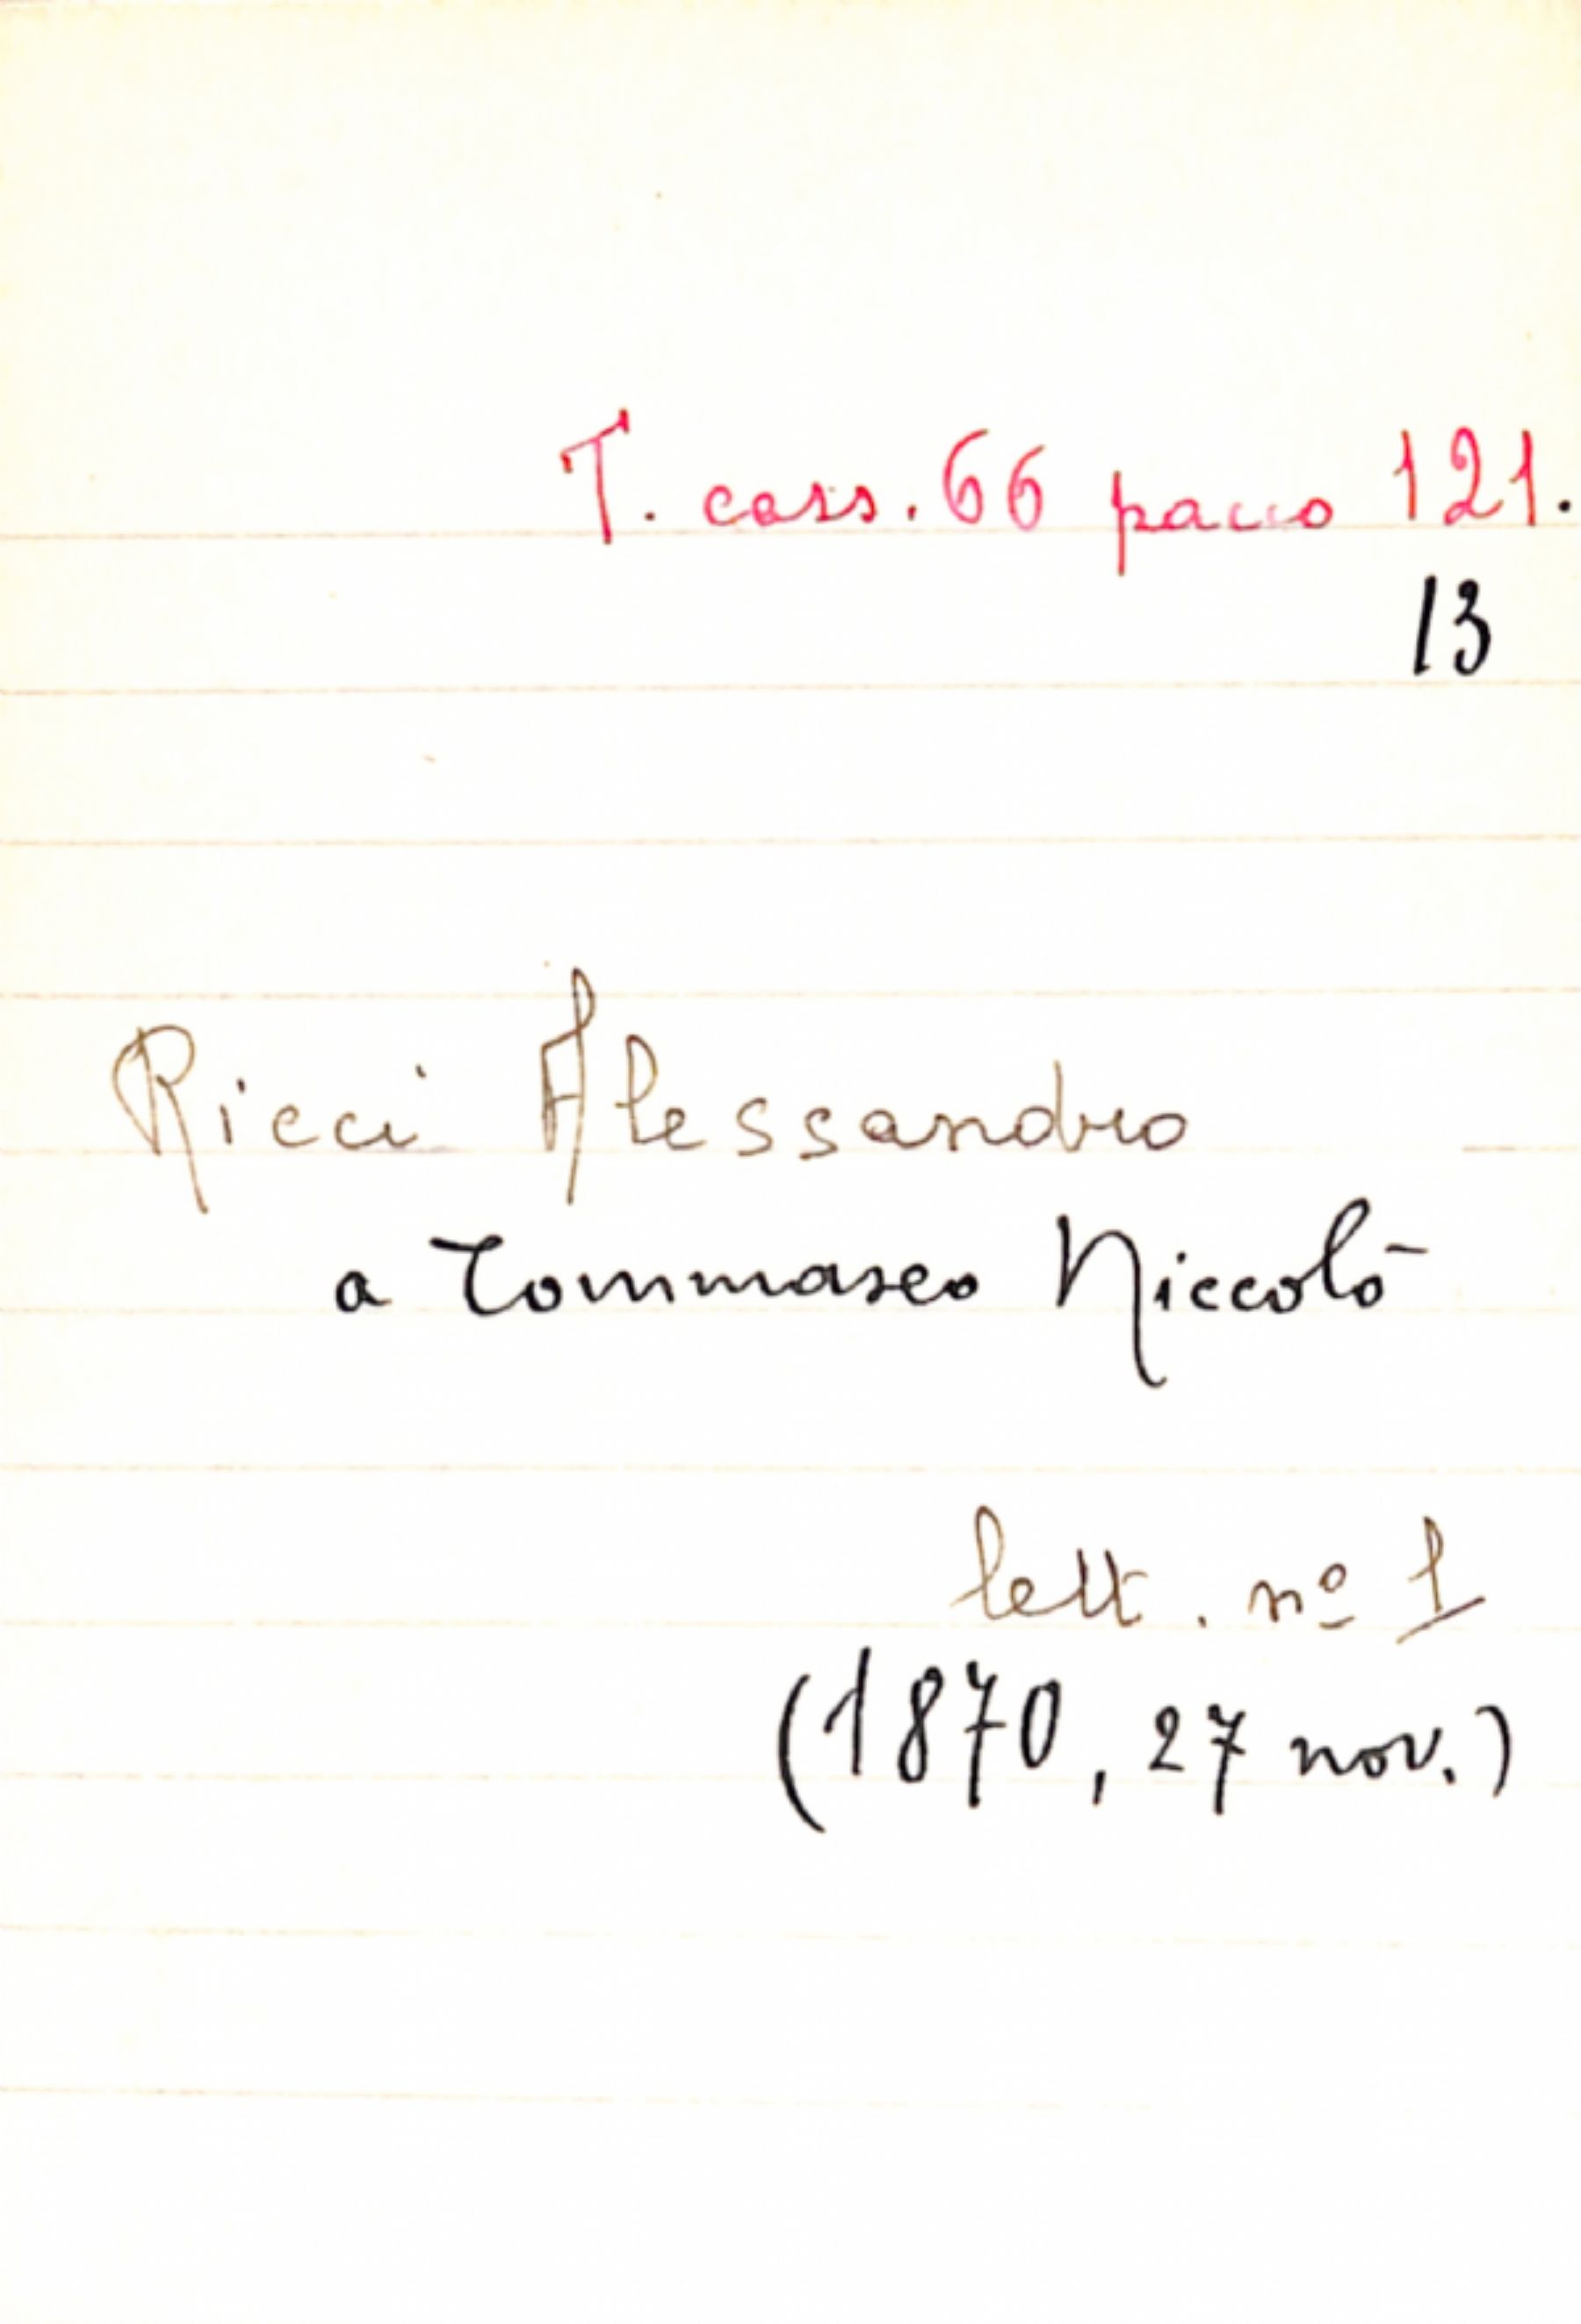 T. cass. 66 pacco 121.
13
Ricci Alessandro
a Tommaseo Niccolò
lett. nº 1
(1870, 27 nov.)